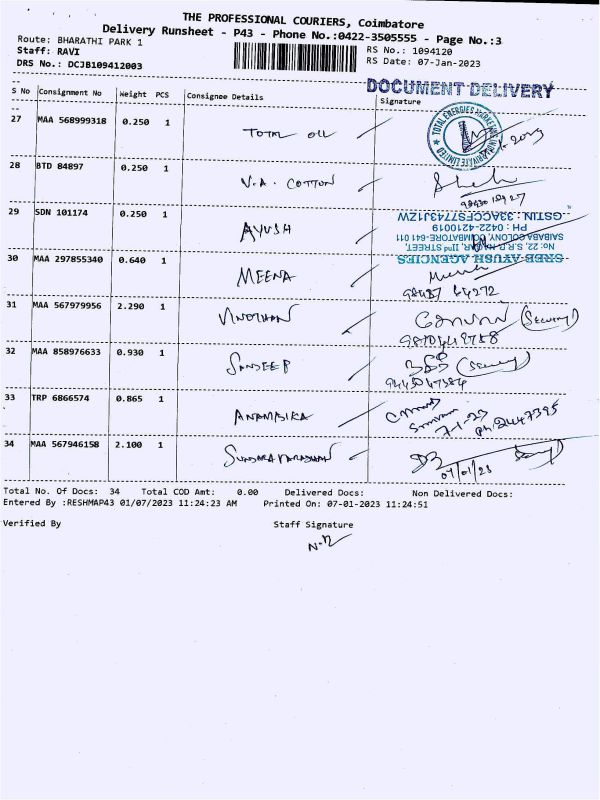 THE PROFESSIONAL COURIERS, Coimbatore
Delivery Runsheet - P43 - Phone No.:0422-3505555 - Page No.:3
Route: BHARATHI PARK 1
Staff: RAVI
DRS No.: DCJB109412003
RS No.: 1094120
RS Date: 07-Jan-2023
DOCUMENT DELIVERY
S No Consignment No Weight PCS Consignee Details Signature
27 MAA 568999318 0.250 1 TOTAL OIL
28 BTD 84897 0.250 1 V.A. COTTON
29 SDN 101174 0.250 1 AYUSH
GSTIN: 33ACCFS7743J1ZW
PH : 0422-4210019
SAIBABA COLONY, COIMBATORE-641 011
No: 22, S.R.P. NAGAR, IInd STREET,
SREE AYUSH AGENCIES
30 MAA 297855340 0.640 1 MEENA
31 MAA 567979956 2.290 1 VINOTHAN (Security)
32 MAA 858976633 0.930 1 SANDEEP (Security)
33 TRP 6866574 0.865 1 ANAMBIKA
7-1-23
Ph: 2447395
34 MAA 567946158 2.100 1 SUNDARAVARADHAN
07/01/23
Total No. Of Docs: 34 Total COD Amt: 0.00 Delivered Docs: Non Delivered Docs:
Entered By :RESHMAP43 01/07/2023 11:24:23 AM Printed On: 07-01-2023 11:24:51
Verified By Staff Signature